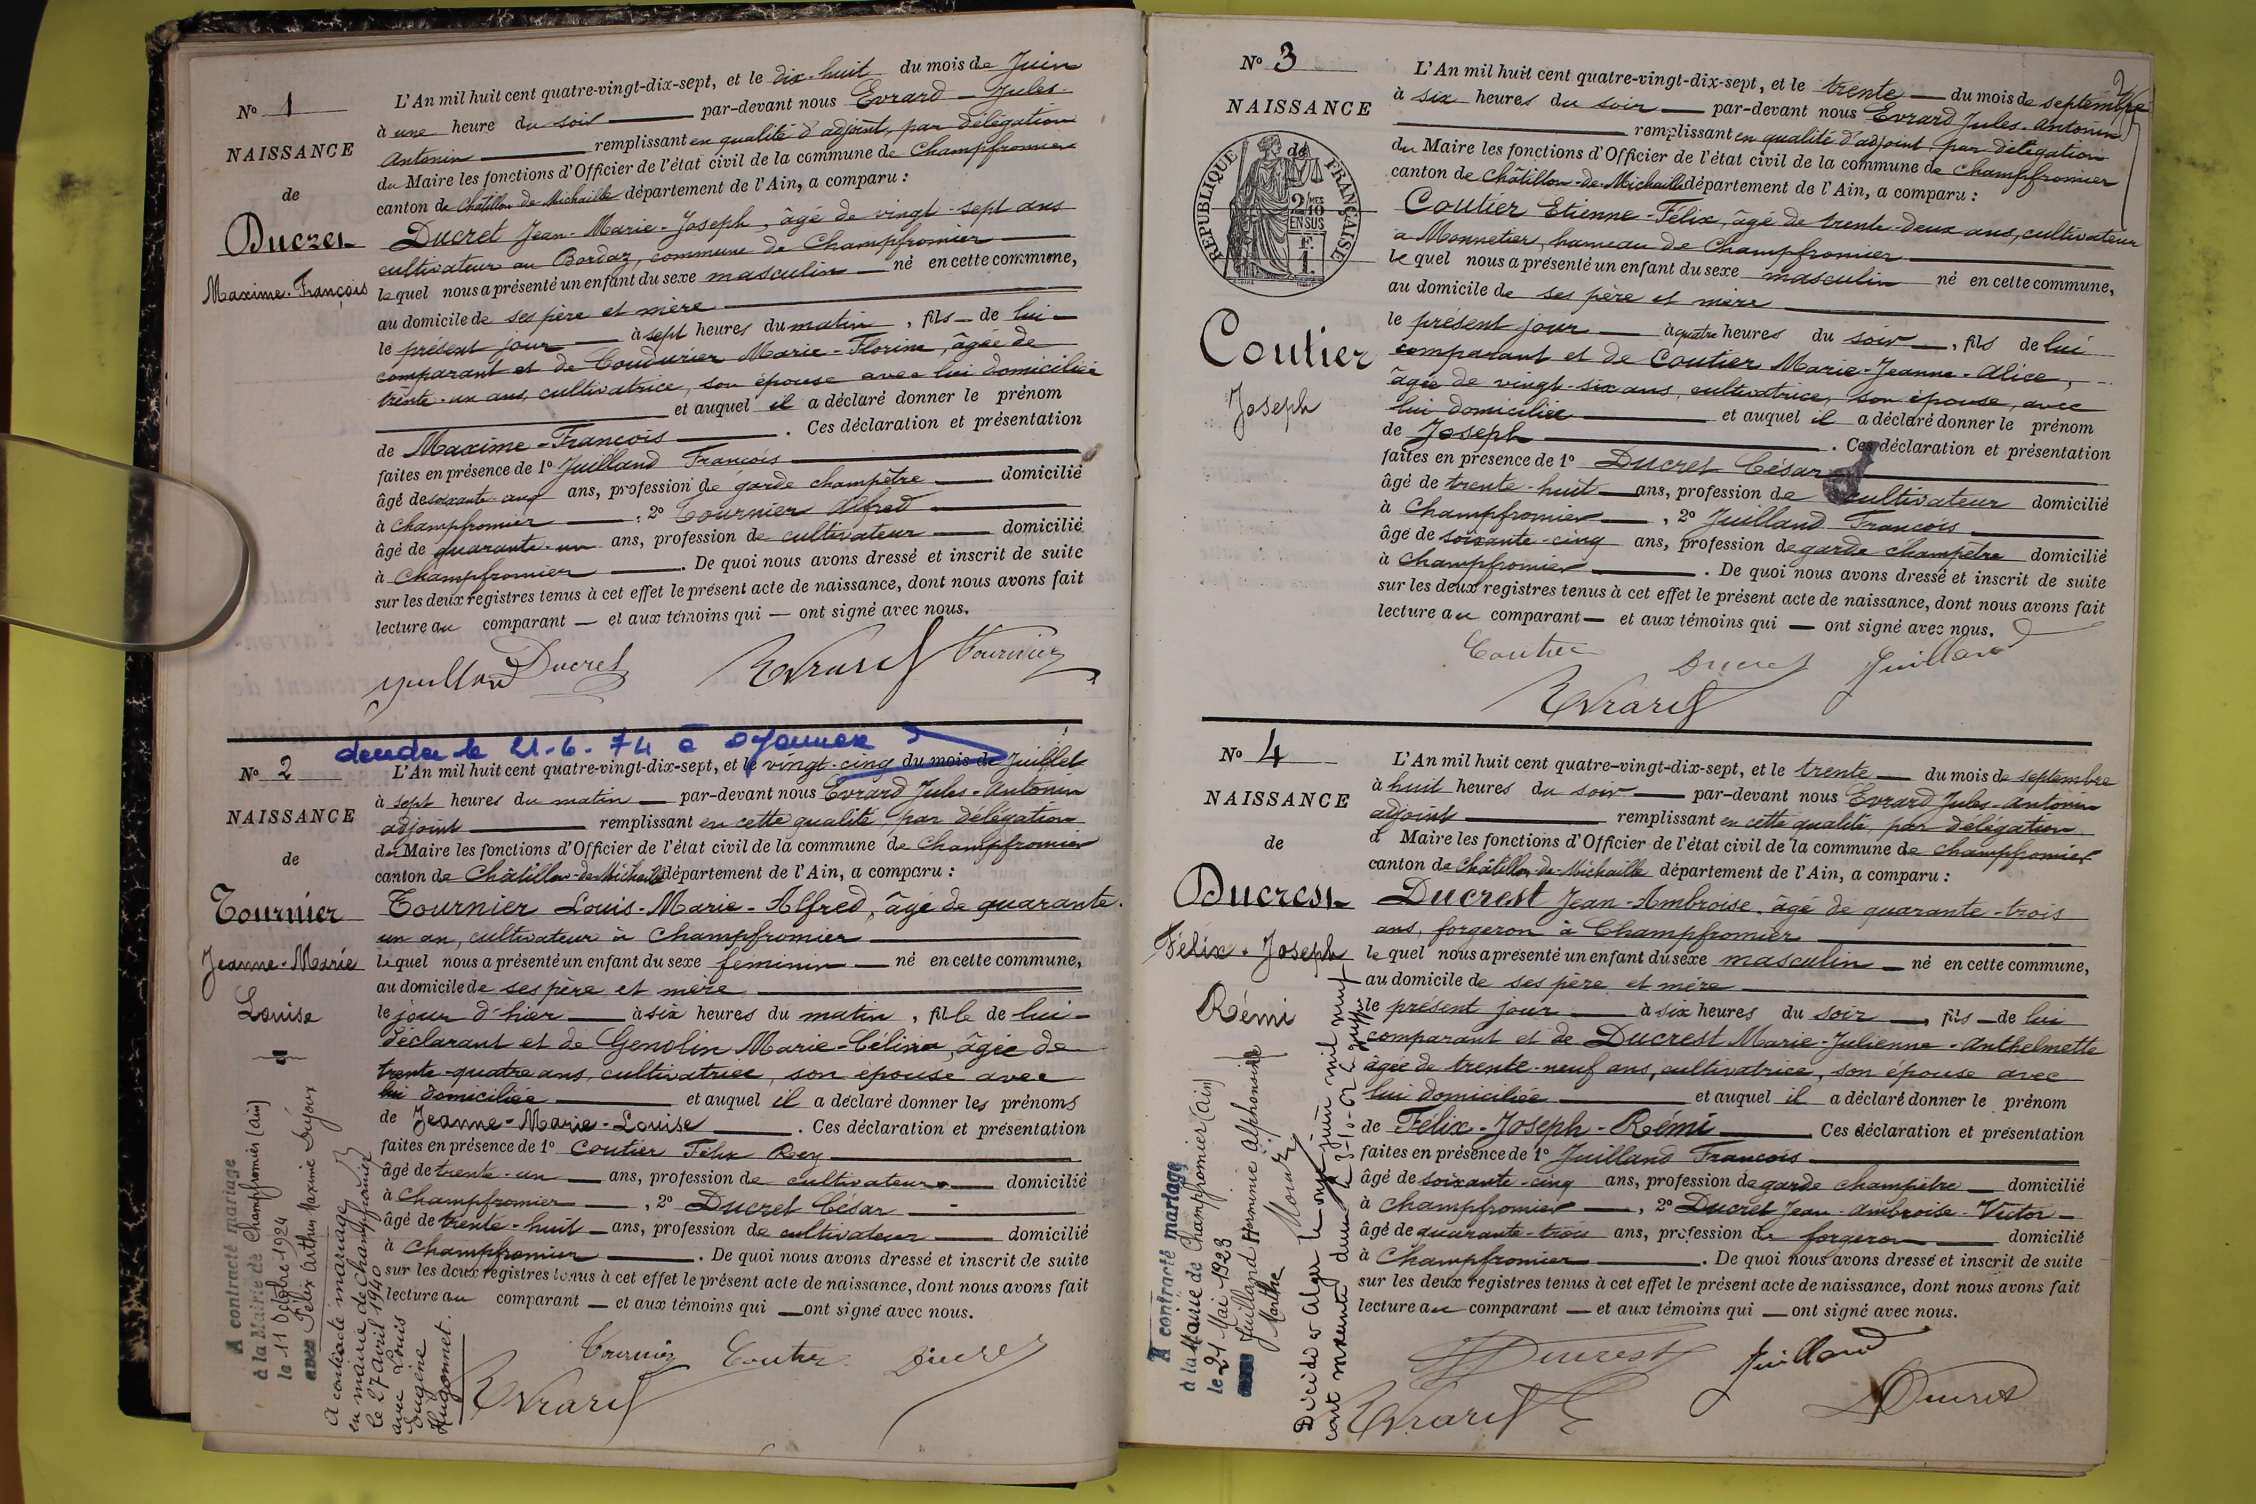 N° 1
NAISSANCE
de
Ducret
Maxime-François
L'An mil huit cent quatre-vingt-dix-sept, et le dix-huit du mois de Juin
à une heure du soir par-devant nous Evrard Jules
Antonin remplissant en qualité d'adjoint, par délégation
du Maire les fonctions d'Officier de l'état civil de la commune de Champfromier
canton de Châtillon de Michaille département de l'Ain, a comparu :
Ducret Jean-Marie-Joseph, âgé de vingt-sept ans
cultivateur au Bordaz, commune de Champfromier
lequel nous a présenté un enfant du sexe masculin né en cette commune,
au domicile de ses père et mère
le présent jour à sept heures du matin, fils de lui
comparant et de Coudurier Marie-Florine, âgée de
trente-un ans, cultivatrice, son épouse avec lui domiciliée
et auquel il a déclaré donner le prénom
de Maxime-François. Ces déclaration et présentation
faites en présence de 1° Juilland François
âgé de soixante-cinq ans, profession de garde champêtre domicilié
à Champfromier, 2° Tournier Alfred
âgé de quarante-un ans, profession de cultivateur domicilié
à Champfromier. De quoi nous avons dressé et inscrit de suite
sur les deux registres tenus à cet effet le présent acte de naissance, dont nous avons fait
lecture au comparant et aux témoins qui ont signé avec nous.
Juilland Ducret Evrard Tournier
décédée le 21-6-74 à Oyonnax
N° 2
NAISSANCE
de
Tournier
Jeanne-Marie
Louise
L'An mil huit cent quatre-vingt-dix-sept, et le vingt-cinq du mois de Juillet
à sept heures du matin par-devant nous Evrard Jules-Antonin
adjoint remplissant en cette qualité, par délégation
du Maire les fonctions d'Officier de l'état civil de la commune de Champfromier
canton de Châtillon-de-Michaille département de l'Ain, a comparu :
Tournier Louis-Marie-Alfred, âgé de quarante-
un an, cultivateur à Champfromier
lequel nous a présenté un enfant du sexe féminin né en cette commune,
au domicile de ses père et mère
le jour d'hier à six heures du matin, fille de lui
déclarant et de Genolin Marie-Célina, âgée de
trente-quatre ans, cultivatrice, son épouse avec
lui domiciliée et auquel il a déclaré donner les prénoms
de Jeanne-Marie-Louise. Ces déclaration et présentation
faites en présence de 1° Coutier Félix Rey
âgé de trente-un ans, profession de cultivateur domicilié
à Champfromier, 2° Ducret César
âgé de trente-huit ans, profession de cultivateur domicilié
à Champfromier. De quoi nous avons dressé et inscrit de suite
sur les deux registres tenus à cet effet le présent acte de naissance, dont nous avons fait
lecture au comparant et aux témoins qui ont signé avec nous.
Tournier Coutier Ducret
Evrard
A contracté mariage
à la Mairie de Champfromier (Ain)
le 11 Octobre 1924
avec Félix Arthur Maxime Dujoux
A contracté mariage
en mairie de Champfromier
le 27 Avril 1940
avec Louis
Eugène
Hugonnet.
N° 3
NAISSANCE
de
RÉPUBLIQUE FRANÇAISE
2/10
EN SUS
Coutier
Joseph
L'An mil huit cent quatre-vingt-dix-sept, et le trente du mois de septembre
à six heures du soir par-devant nous Evrard Jules-Antonin
remplissant en qualité d'adjoint, par délégation
du Maire les fonctions d'Officier de l'état civil de la commune de Champfromier
canton de Châtillon-de-Michaille département de l'Ain, a comparu :
Coutier Etienne-Félix, âgé de trente-deux ans, cultivateur
a Monnetier, hameau de Champfromier
lequel nous a présenté un enfant du sexe masculin né en cette commune,
au domicile de ses père et mère
le présent jour à quatre heures du soir, fils de lui
comparant et de Coutier Marie-Jeanne-Alice,
âgée de vingt-six ans, cultivatrice, son épouse, avec
lui domiciliée et auquel il a déclaré donner le prénom
de Joseph. Ces déclaration et présentation
faites en présence de 1° Ducret César
âgé de trente-huit ans, profession de cultivateur domicilié
à Champfromier, 2° Juilland François
âgé de soixante-cinq ans, profession de garde champêtre domicilié
à Champfromier. De quoi nous avons dressé et inscrit de suite
sur les deux registres tenus à cet effet le présent acte de naissance, dont nous avons fait
lecture au comparant et aux témoins qui ont signé avec nous.
Coutier Ducret Juilland
Evrard
N° 4
NAISSANCE
de
Ducrest
Félix-Joseph
Rémi
L'An mil huit cent quatre-vingt-dix-sept, et le trente du mois de septembre
à huit heures du soir par-devant nous Evrard Jules-Antonin
adjoint remplissant en cette qualité, par délégation
d Maire les fonctions d'Officier de l'état civil de la commune de Champfromier
canton de Châtillon-de-Michaille département de l'Ain, a comparu :
Ducrest Jean-Ambroise, âgé de quarante-trois
ans, forgeron à Champfromier
lequel nous a présenté un enfant du sexe masculin né en cette commune,
au domicile de ses père et mère
le présent jour à six heures du soir, fils de lui
comparant et de Ducrest Marie-Julienne-Anthelmette
âgée de trente-neuf ans, cultivatrice, son épouse avec
lui domiciliée et auquel il a déclaré donner le prénom
de Félix-Joseph-Rémi Ces déclaration et présentation
faites en présence de 1° Juilland François
âgé de soixante-cinq ans, profession de garde champêtre domicilié
à Champfromier, 2° Ducret Jean-Ambroise-Victor
âgé de quarante-trois ans, profession de forgeron domicilié
à Champfromier. De quoi nous avons dressé et inscrit de suite
sur les deux registres tenus à cet effet le présent acte de naissance, dont nous avons fait
lecture au comparant et aux témoins qui ont signé avec nous.
Ducrest Juilland
Evrard Ducret
A contracté mariage
à la Mairie de Champfromier (Ain)
le 21 Mai 1923
avec Juilland Herminie Alphonsine
Marthe
Décédé à Alger le onze juin mil neuf
cent